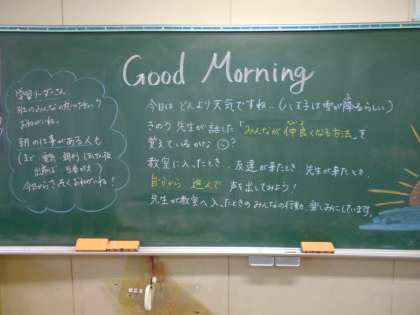 Good Morning
今日は どんより天気ですね‥(八王子は雪が降るらしい)
きのう 先生が話した「みんなが仲良くなる方法」を
覚えているかな
教室に入ったとき、友達が来たとき 先生が来たとき、
自分から 進んで 声を出してみよう!
先生が教室へ入ったときのみんなの行動、楽しみにしています。
学習リーダーさん、
おねがいね。
朝の仕事がある人も
(まど 電気
今日からさっそくおねがいね!